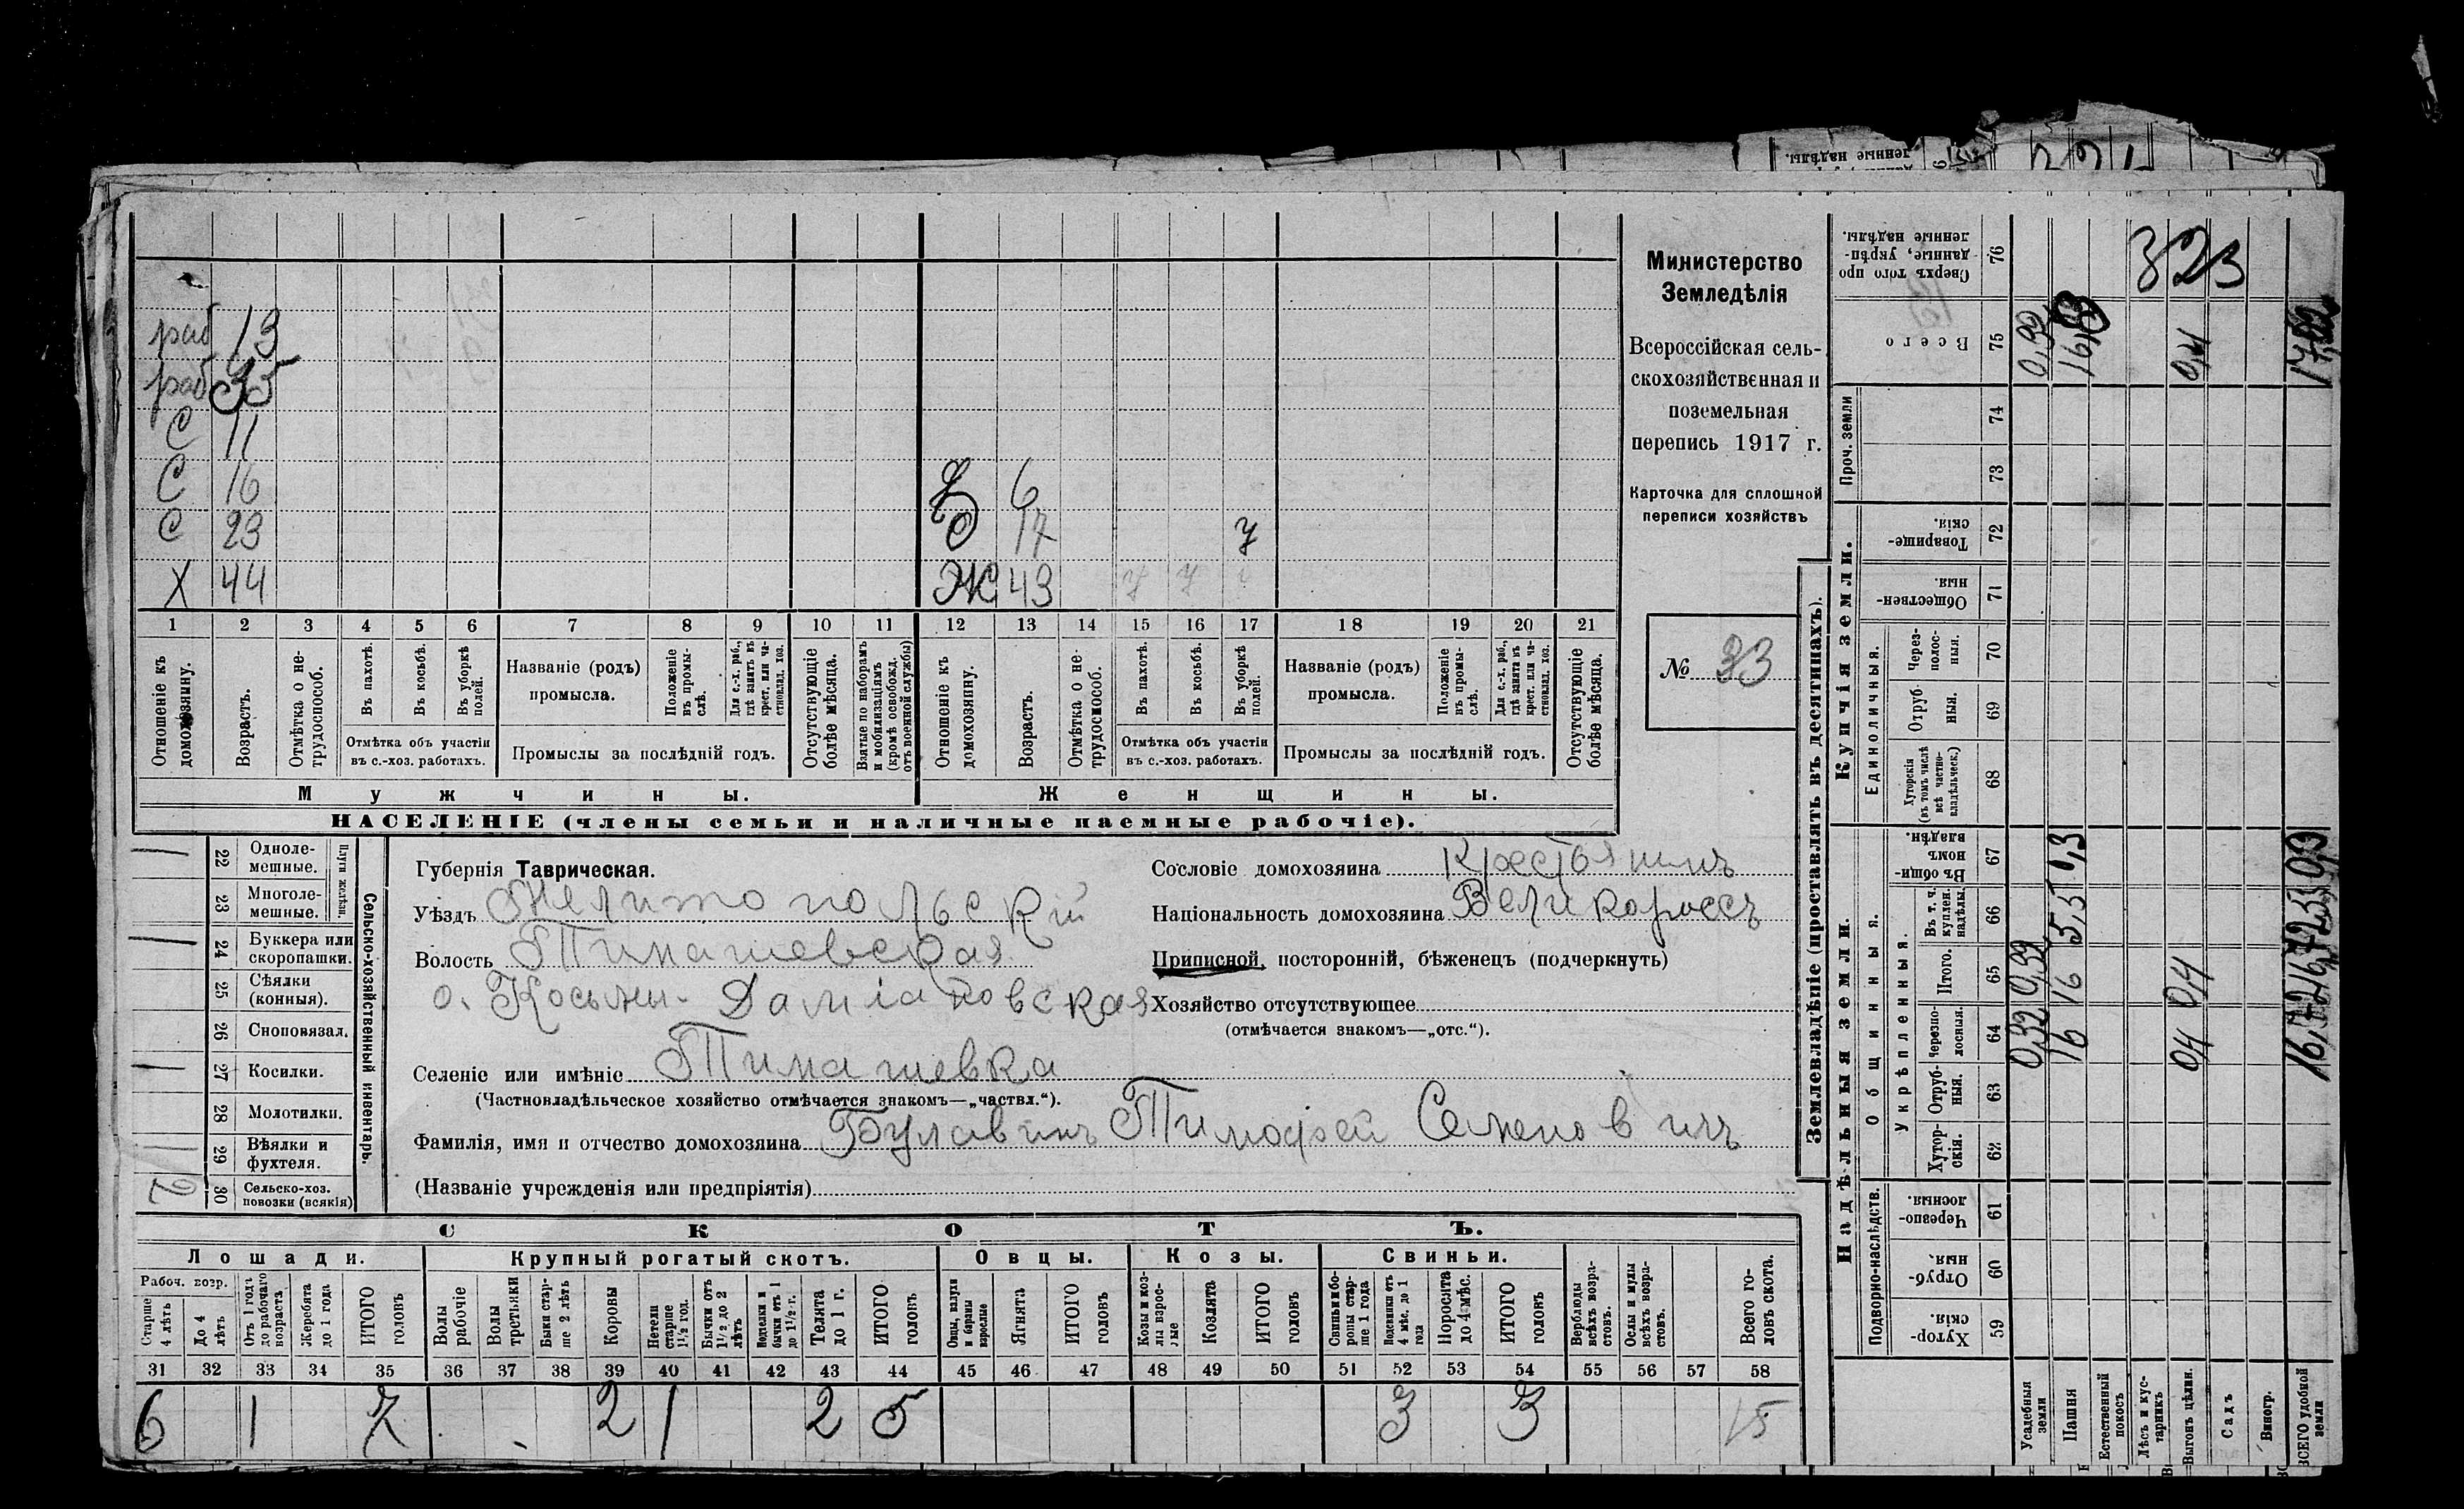 денные надѣлы.
Министерство
Земледѣлія
Всероссійская сель-
скохозяйственная и
поземельная
перепись 1917 г.
Карточка для сплошной
переписи хозяйствъ
№ 33
раб 13
раб 35
С 11
С 16 6
С 23 Д 17 у
Х 44 Ж 43 у у
1 2 3 4 5 6 7 8 9 10 11 12 13 14 15 16 17 18 19 20 21
Отношеніе къ домохозяину.
Возрастъ.
Отмѣтка о не-трудоспособ.
Въ пахотѣ.
Въ косьбѣ.
Въ уборкѣ полей.
Отмѣтка объ участіи
въ с.-хоз. работахъ.
Названіе (родъ)
промысла.
Положеніе въ промы-слѣ.
Для с.-х. раб., гдѣ занятъ въ крест. или ча-стновлад. хоз.
Промыслы за послѣдній годъ.
Отсутствующіе болѣе мѣсяца.
Взятые по наборамъ и мобилизаціямъ (кромѣ освобожд. отъ военной службы)
Отношеніе къ домохозяину.
Возрастъ.
Отмѣтка о не-трудоспособ.
Въ пахотѣ.
Въ косьбѣ.
Въ уборкѣ полей.
Отмѣтка объ участіи
въ с.-хоз. работахъ.
Названіе (родъ)
промысла.
Положеніе въ промы-слѣ.
Для с.-х. раб., гдѣ занята въ крест. или ча-стновлад. хоз.
Промыслы за послѣдній годъ.
Отсутствующіе болѣе мѣсяца.
Мужчины. Женщины.
НАСЕЛЕНІЕ (члены семьи и наличные наемные рабочіе).
Сельско-хозяйственный инвентарь.
Плуги желѣзн.
22 Одноле-мешные.
23 Многоле-мешные.
24 Буккера или скоропашки.
25 Сѣялки (конныя).
26 Сноповязал.
27 Косилки.
28 Молотилки.
29 Вѣялки и фухтеля.
2 30 Сельско-хоз. повозки (всякія)
Губернія Таврическая.
Уѣздъ Мелитопольскій
Волость Тимашевская
о. Косьмы-Даміановская
Селеніе или имѣніе Тимашевка
(Частновладѣльческое хозяйство отмѣчается знакомъ—„частвл.“).
Фамилія, имя и отчество домохозяина Булавинъ Тимофей Семеновичъ
(Названіе учрежденія или предпріятія)
Сословіе домохозяина Крестьянинъ
Національность домохозяина Великороссъ
Приписной, посторонній, бѣженецъ (подчеркнуть)
Хозяйство отсутствующее
(отмѣчается знакомъ—„отс.“).
СКОТЪ.
Лошади. Крупный рогатый скотъ. Овцы. Козы. Свиньи.
Рабоч. возр.
Старше 4 лѣтъ
До 4 лѣтъ
Отъ 1 года до рабочаго возраста
Жеребята до 1 года
ИТОГО головъ
Волы рабочіе
Волы третьяки
Быки стар-ше 2 лѣтъ
Коровы
Нетели старше 1½ год.
Бычки отъ 1½ до 2 лѣтъ
Телята до 1 г.
ИТОГО головъ
Ягнята
ИТОГО головъ
Козы и коз-лы взрос-лые
Козлята
ИТОГО головъ
Свиньи и бо-ровы стар-ше 1 года
Подсвинки отъ 4 мѣс. до 1 года
Поросята до 4 мѣс.
ИТОГО головъ
Верблюды всѣхъ возра-стовъ.
Ослы и мулы всѣхъ возра-стовъ.
Всего го-ловъ скота.
31 32 33 34 35 36 37 38 39 40 41 42 43 44 45 46 47 48 49 50 51 52 53 54 55 56 57 58
6 1 7 2 1 2 5 3 3 15
Землевладѣніе (проставлять въ десятинахъ).
Надѣльныя земли.
Купчія земли.
Проч. земли
Подворно-наслѣдств.
Общинныя.
Укрѣпленныя.
Единоличныя.
59 Хутор-скія.
60 Отруб-ныя.
61 Черезпо-лосныя.
62 Хутор-скія.
63 Отруб-ныя.
64 Черезпо-лосныя.
65 Итого.
66 Въ т. ч. куплен. надѣлы.
67 Въ общин-номъ владѣн.
68 Хуторскія (въ томъ числѣ всѣ частно-владѣльческ.)
69 Отруб-ныя.
70 Через-полос-ныя.
71 Обществен-ныя.
72 Товарище-скія.
73
74
75 Всего
76 Сверхъ того про-данные, укрѣп-ленные надѣлы.
Усадебныя земли 0,32 0,32
Пашня 16 16
Естественный покосъ
Лѣсъ и кус-тарникъ
Выгонъ цѣлин. 0,4 0,4
Садъ
Виногр.
ВСЕГО удобной земли
323